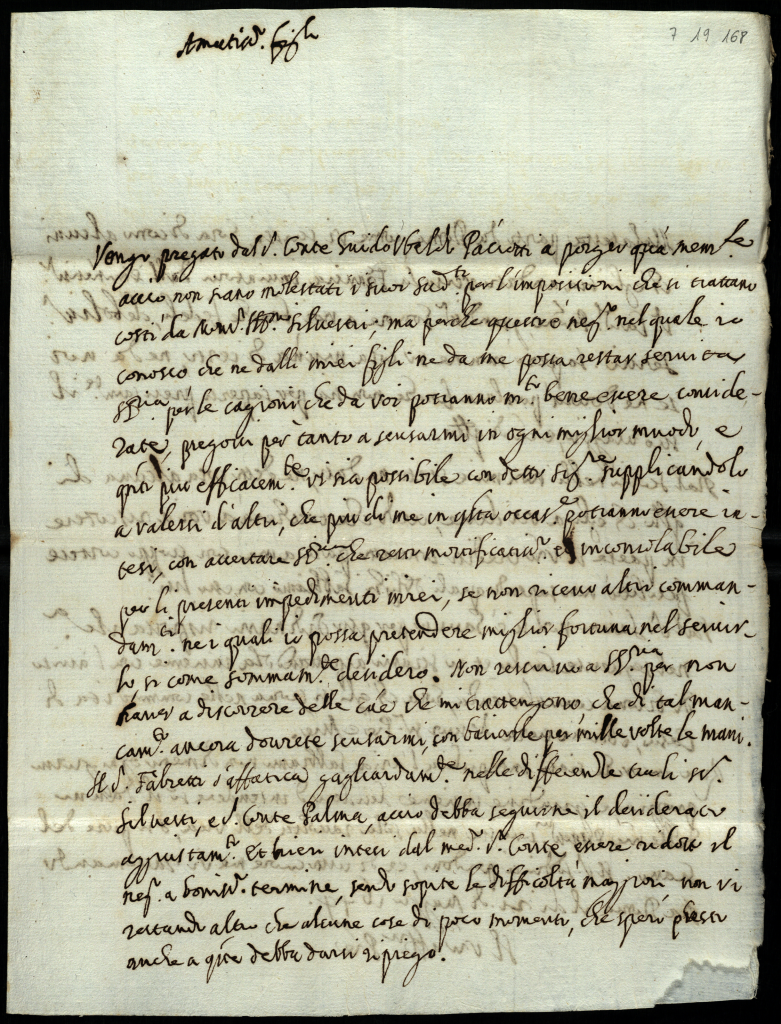 7 19 168
Amatis.mi figli
Vengo pregato dal S. Conte Guido Vbaldi Paciotti a porger quà mem.le
acciò non siano molestati i suoi Sud.ti per l'imposizioni che si trattano
costì da Silvestri, ma perche questo è neg.o nel quale io
conosco che ne dalli miei figli ne da me possa restar servita
SS.ria per le cagioni che da voi potranno m.to bene essere conside-
rate, pregovi per tanto a scusarmi in ogni miglior modo, e
q.to più efficacem.te vi sia possibile con detto Sig.re supplicandolo
a valersi d'altri, che più di me in q.sta occas.e potranno essere in-
tesi, con accertare che resto mortificatiss.o et inconsolabile
per li presenti impedimenti miei, se non ricevo altri comman-
dam.ti ne i quali io possa pretendere miglior fortuna nel servir-
lo, si come sommam.te desidero. Non rescrivo a SS.ria per non
haver a discorrere delle che mi trattengono che di tal man-
cam.to ancora dovrete scusarmi, con baciarle per mille volte le mani.
Il S. Fabretti s'affatica gagliardam.te nelle differenze tra li SS.
Silvestri, e S. Conte Palma, acciò debba seguirne il desiderato
aggiustam.to. Et hieri intesi dal med.o S. Conte essere ridotto il
neg.o a boniss.o termine, sendo sopite le difficoltà maggiori non vi
restando altro che alcune cose di poco momento, che spero presto
anche a q.te debba darsi ripiego.